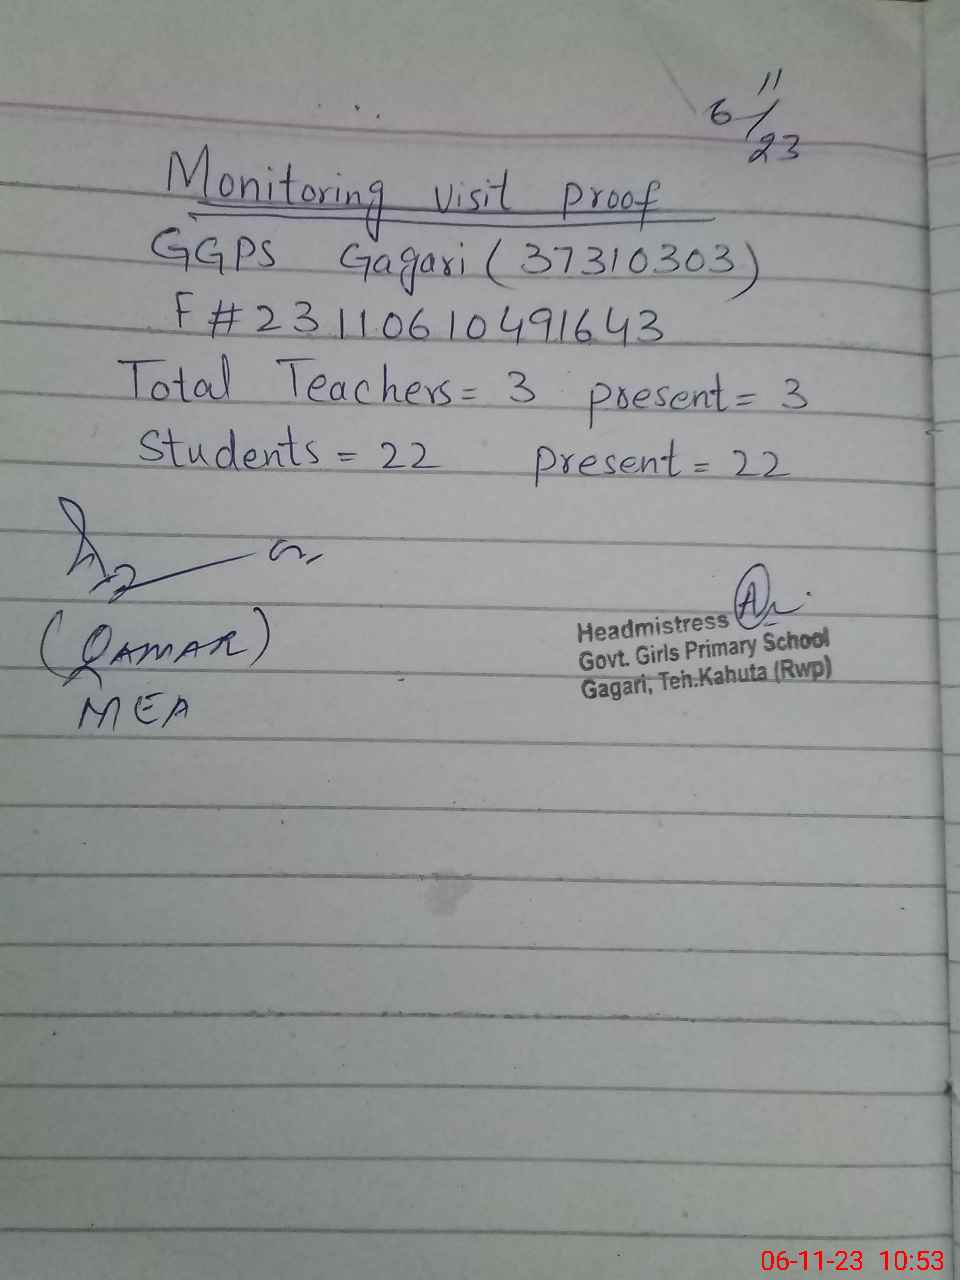 6/11/23
Monitoring visit proof
GGPS Gagari (37310303)
F # 23110610491643
Total Teachers = 3 present = 3
Students = 22 present = 22
(QAMAR)
MEA
Headmistress
Govt. Girls Primary School
Gagari, Teh.Kahuta (Rwp)
06-11-23 10:53